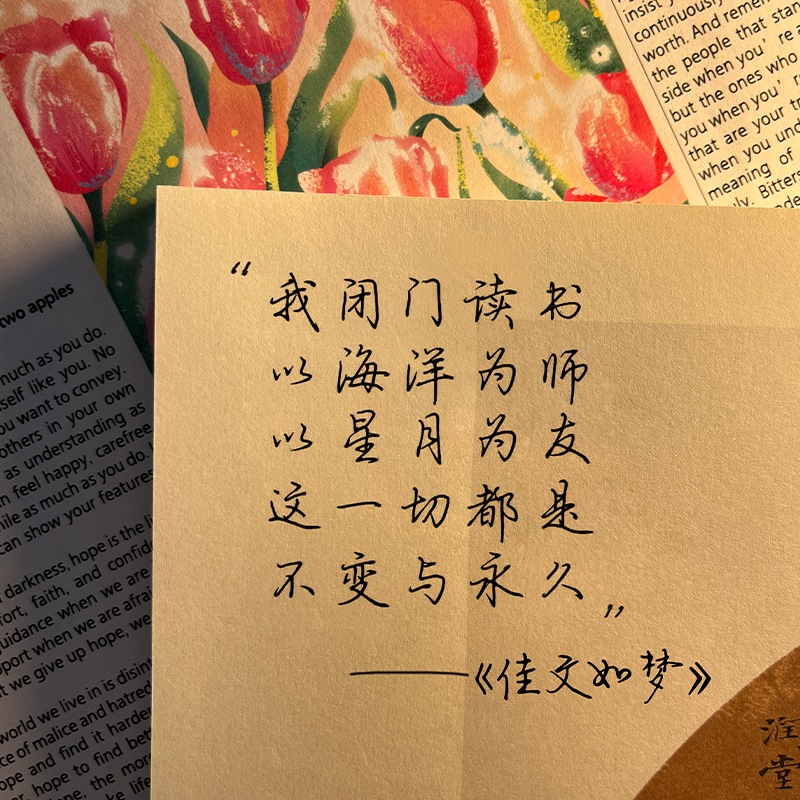 “我闭门读书
以海洋为师
以星月为友
这一切都是
不变与永久”
——《佳文如梦》
insist
continuously
worth. And remem
the people that stan
side when you're
but the ones who
you when you'
that are your tr
when you und
meaning of
Bitters
two apples
much as you do.
self like you. No
you want to convey.
others in your own
as understanding as
feel happy, carefree
as much as you do.
can show your features
darkness, hope is the
fort, faith, and confid
guidance when we are
port when we are afrai
we give up hope, we
world we live in is disint
ce of malice and hatred
ope and find it harder
hope to find bett
the more
life
堂